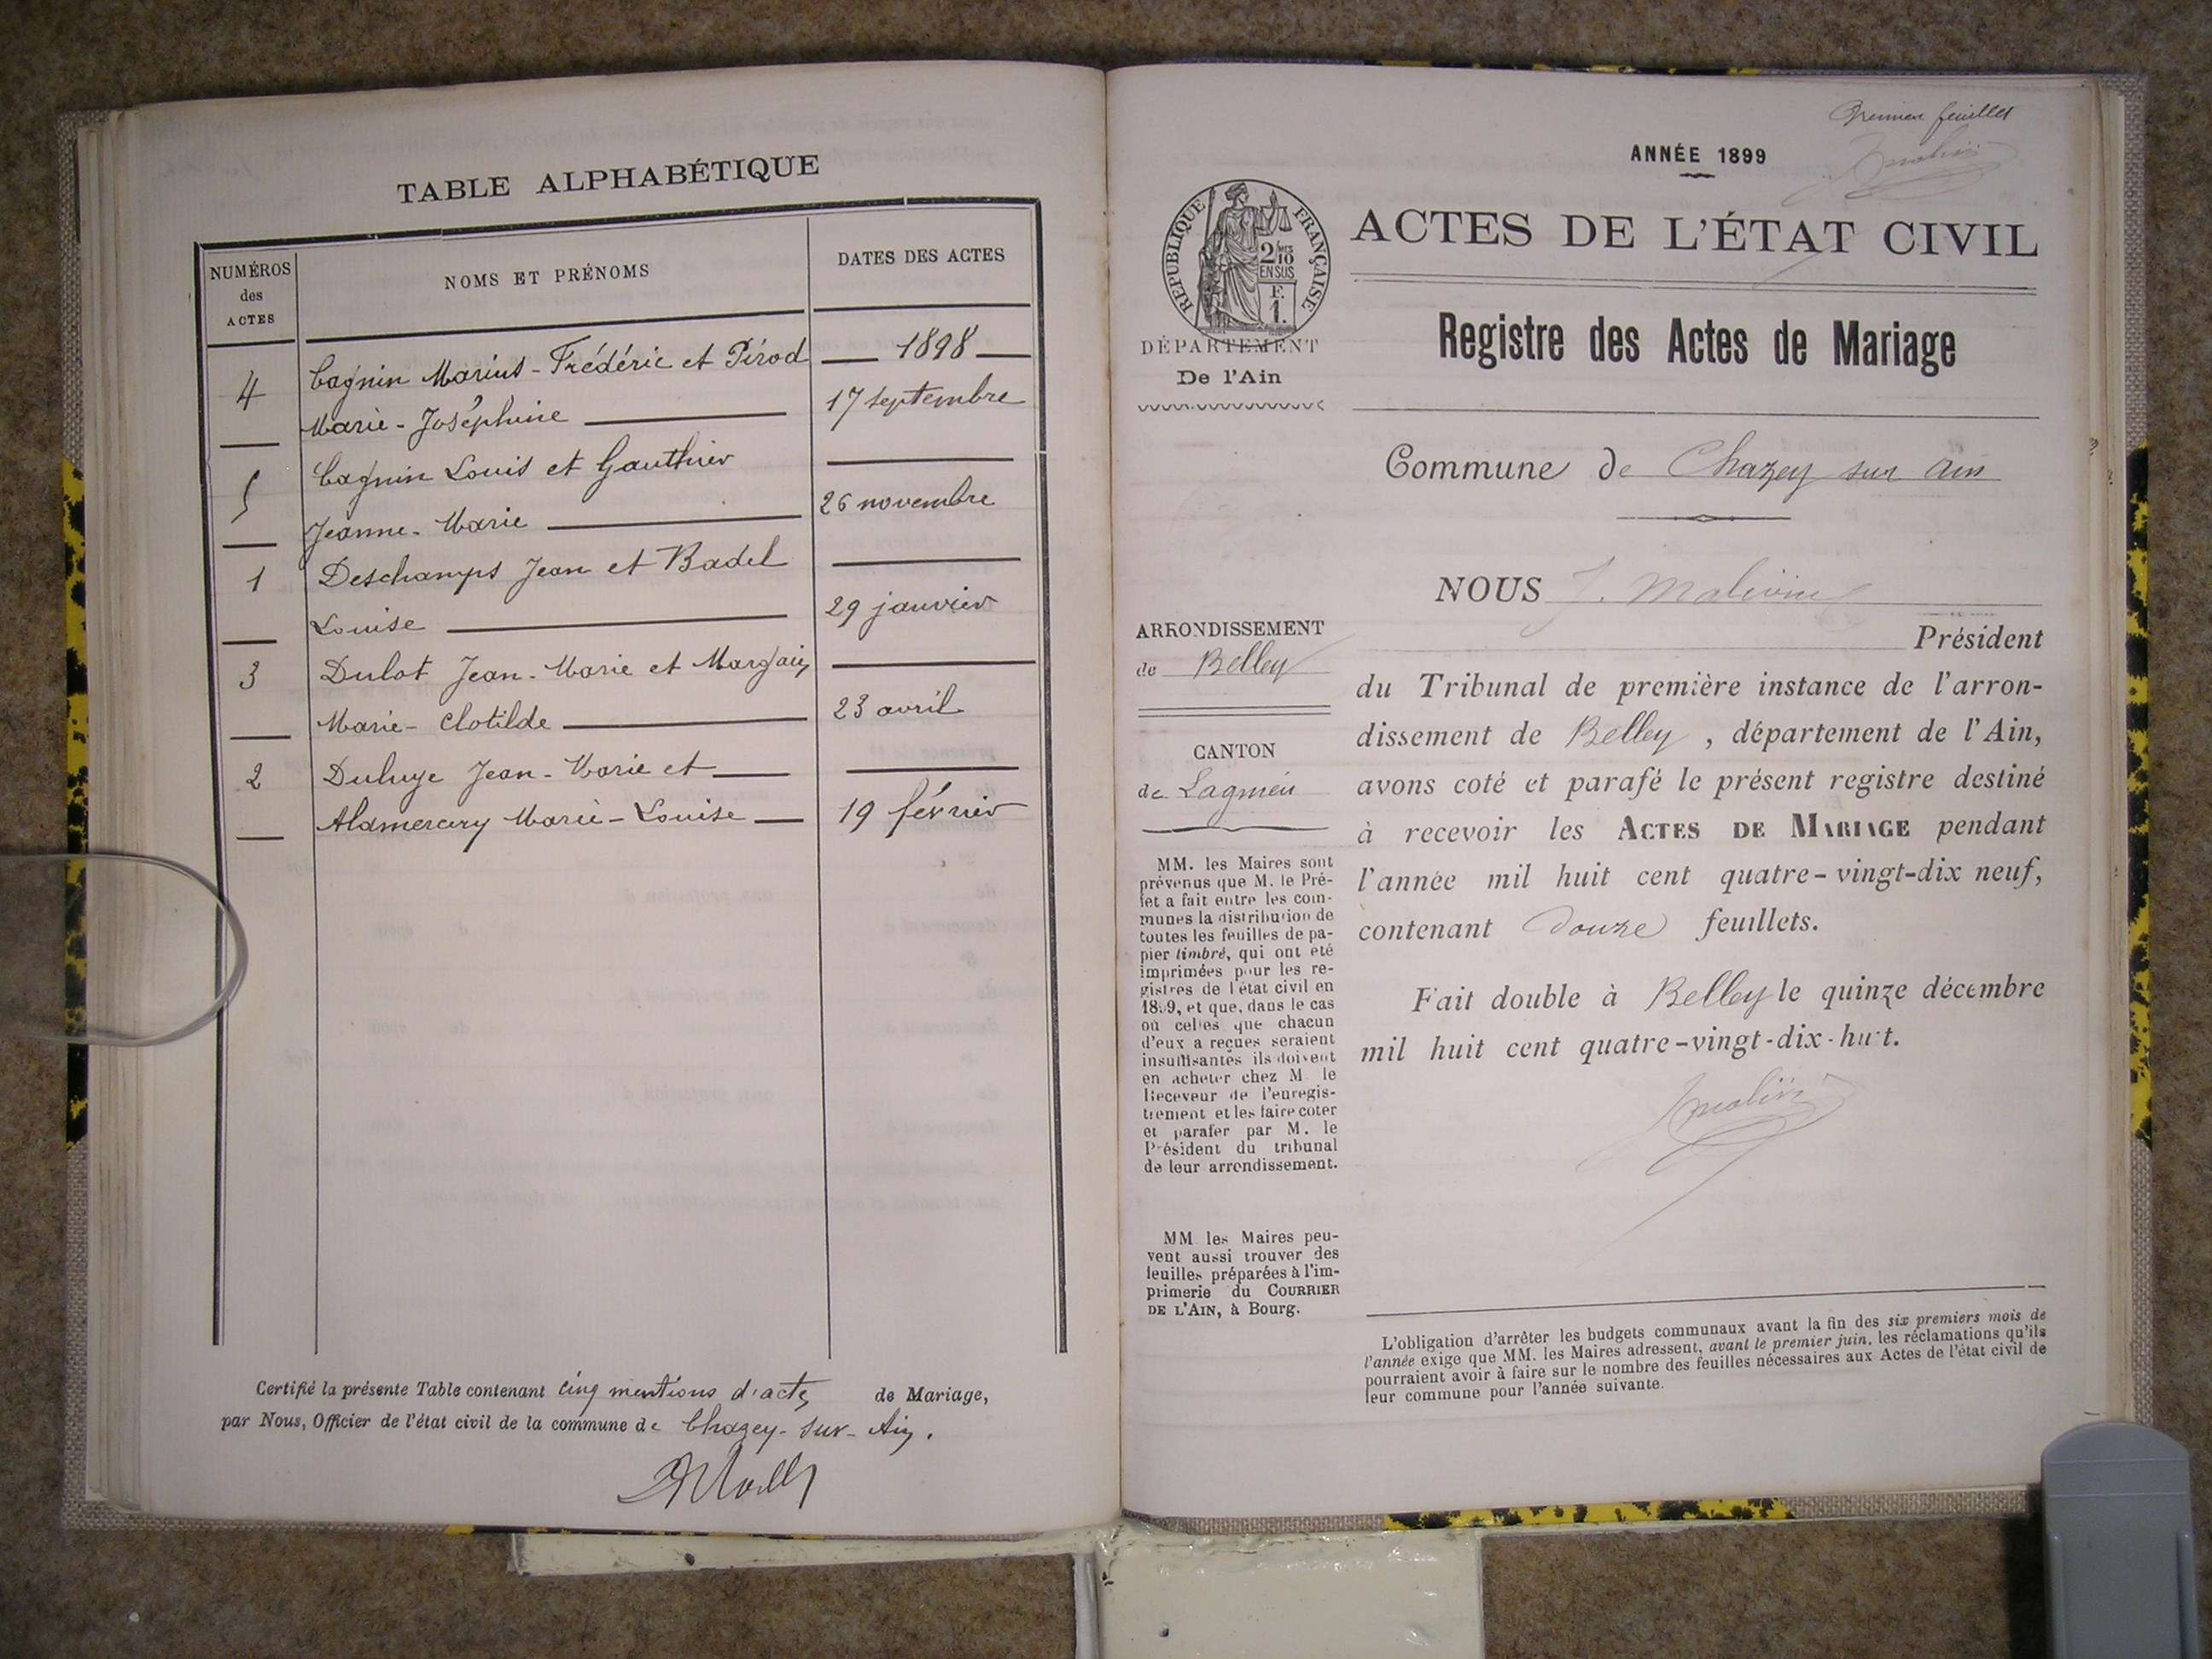 TABLE ALPHABÉTIQUE
NUMÉROS
des
ACTES
NOMS ET PRÉNOMS
DATES DES ACTES
1898
4 Cagnin Marius-Frédéric et Pérod
Marie-Joséphine 17 septembre
5 Cagnin Louis et Gauthier
Jeanne-Marie 26 novembre
1 Deschamps Jean et Badel
Louise 29 janvier
3 Dulot Jean-Marie et Margain
Marie-Clotilde 23 avril
2 Jean-Marie et
Alamercery Marie-Louise 19 février
Certifié la présente Table contenant cinq mentions d'actes de Mariage,
par Nous, Officier de l'état civil de la commune de Chazey-sur-Ain.
Premier feuillet
ANNÉE 1899
RÉPUBLIQUE FRANÇAISE
2/10
EN SUS
F.
1.
ACTES DE L'ÉTAT CIVIL
DÉPARTEMENT
De l'Ain
Registre des Actes de Mariage
Commune de Chazey sur Ain
ARRONDISSEMENT
de Belley
CANTON
de Lagnieu
MM. les Maires sont
prévenus que M. le Pré-
fet a fait entre les com-
munes la distribution de
toutes les feuilles de pa-
pier timbré, qui ont été
imprimées pour les re-
gistres de l'état civil en
1899, et que, dans le cas
où celles que chacun
d'eux a reçues seraient
insuffisantes ils doivent
en acheter chez M. le
Receveur de l'enregis-
trement et les faire coter
et parafer par M. le
Président du tribunal
de leur arrondissement.
MM. les Maires peu-
vent aussi trouver des
feuilles préparées à l'im-
primerie du COURRIER
DE L'AIN, à Bourg.
NOUS J.
Président
du Tribunal de première instance de l'arron-
dissement de Belley, département de l'Ain,
avons coté et parafé le présent registre destiné
à recevoir les ACTES DE MARIAGE pendant
l'année mil huit cent quatre-vingt-dix neuf,
contenant douze feuillets.
Fait double à Belley le quinze décembre
mil huit cent quatre-vingt-dix-huit.
L'obligation d'arrêter les budgets communaux avant la fin des six premiers mois de
l'année exige que MM. les Maires adressent, avant le premier juin, les réclamations qu'ils
pourraient avoir à faire sur le nombre des feuilles nécessaires aux Actes de l'état civil de
leur commune pour l'année suivante.